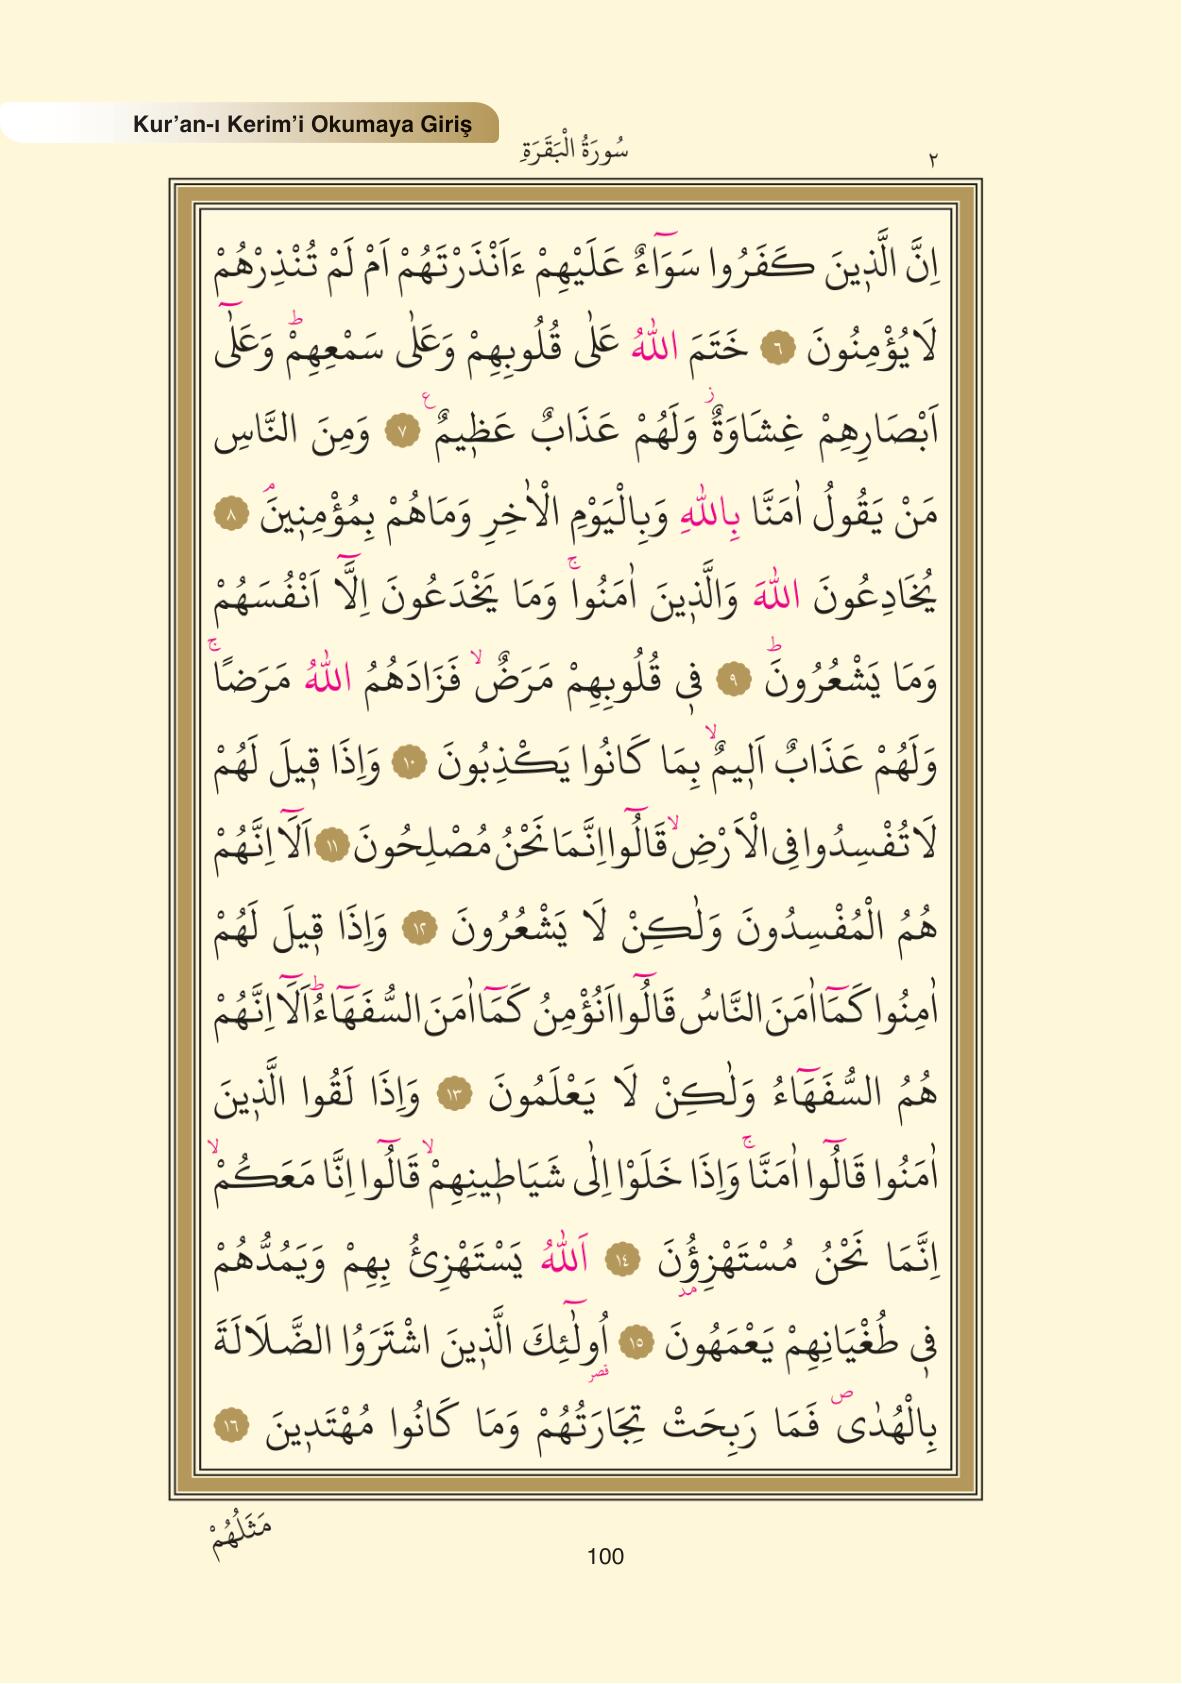 Kur’an-ı Kerim’i Okumaya Giriş
سُورَةُ الْبَقَرَةِ ٢
اِنَّ الَّذ۪ينَ كَفَرُوا سَوَٓاءٌ عَلَيْهِمْ ءَاَنْذَرْتَهُمْ اَمْ لَمْ تُنْذِرْهُمْ
لَا يُؤْمِنُونَ ٦ خَتَمَ اللّٰهُ عَلٰى قُلُوبِهِمْ وَعَلٰى سَمْعِهِمْۜ وَعَلٰٓى
اَبْصَارِهِمْ غِشَاوَةٌۘ وَلَهُمْ عَذَابٌ عَظ۪يمٌ ع ٧ وَمِنَ النَّاسِ
مَنْ يَقُولُ اٰمَنَّا بِاللّٰهِ وَبِالْيَوْمِ الْاٰخِرِ وَمَاهُمْ بِمُؤْمِن۪ينَۢ ٨
يُخَادِعُونَ اللّٰهَ وَالَّذ۪ينَ اٰمَنُواۚ وَمَا يَخْدَعُونَ اِلَّٓا اَنْفُسَهُمْ
وَمَا يَشْعُرُونَۜ ٩ ف۪ي قُلُوبِهِمْ مَرَضٌۙ فَزَادَهُمُ اللّٰهُ مَرَضًاۚ
وَلَهُمْ عَذَابٌ اَل۪يمٌۙ بِمَا كَانُوا يَكْذِبُونَ ١٠ وَاِذَا ق۪يلَ لَهُمْ
لَا تُفْسِدُوا فِى الْاَرْضِۙ قَالُٓوا اِنَّمَا نَحْنُ مُصْلِحُونَ ١١ اَلَٓا اِنَّهُمْ
هُمُ الْمُفْسِدُونَ وَلٰكِنْ لَا يَشْعُرُونَ ١٢ وَاِذَا ق۪يلَ لَهُمْ
اٰمِنُوا كَمَٓا اٰمَنَ النَّاسُ قَالُٓوا اَنُؤْمِنُ كَمَٓا اٰمَنَ السُّفَهَٓاءُۜ اَلَٓا اِنَّهُمْ
هُمُ السُّفَهَٓاءُ وَلٰكِنْ لَا يَعْلَمُونَ ١٣ وَاِذَا لَقُوا الَّذ۪ينَ
اٰمَنُوا قَالُٓوا اٰمَنَّاۚ وَاِذَا خَلَوْا اِلٰى شَيَاط۪ينِهِمْۙ قَالُٓوا اِنَّا مَعَكُمْۙ
اِنَّمَا نَحْنُ مُسْتَهْزِؤُ۫نَ مد ١٤ اَللّٰهُ يَسْتَهْزِئُ بِهِمْ وَيَمُدُّهُمْ
ف۪ي طُغْيَانِهِمْ يَعْمَهُونَ ١٥ اُو۬لٰٓئِكَ قصر الَّذ۪ينَ اشْتَرَوُا الضَّلَالَةَ
بِالْهُدٰىۖ فَمَا رَبِحَتْ تِجَارَتُهُمْ وَمَا كَانُوا مُهْتَد۪ينَ ١٦
مَثَلُهُمْ
100